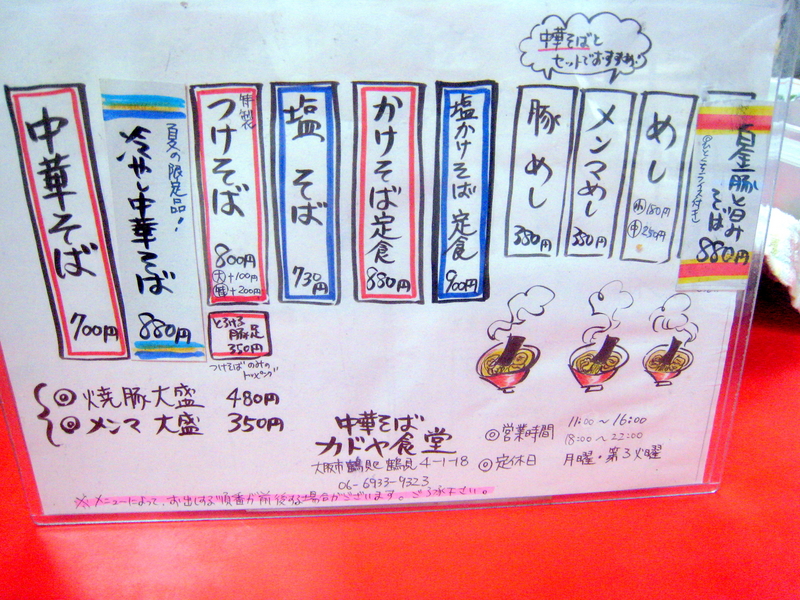 中華そばと
セットでおすすめ。
中華そば
700円
夏の限定品！
冷やし中華そば
880円
特製
つけそば
800円
大+100円
特+200円
とろける
豚足
350円
つけそばのみの
トッピング
塩そば
730円
かけそば定食
880円
塩かけそば定食
900円
豚めし
350円
メンマめし
350円
めし
小150円
中250円
豚と旨み
そば
880円
◎焼豚大盛 480円
◎メンマ大盛 350円
中華そば
カドヤ食堂
大阪市鶴見区鶴見4-1-18
06-6933-9323
◎営業時間 11:00～16:00
18:00～22:00
◎定休日 月曜・第3火曜
※メニューによって、お出しする順番が前後する場合がございます。ご了承下さい。